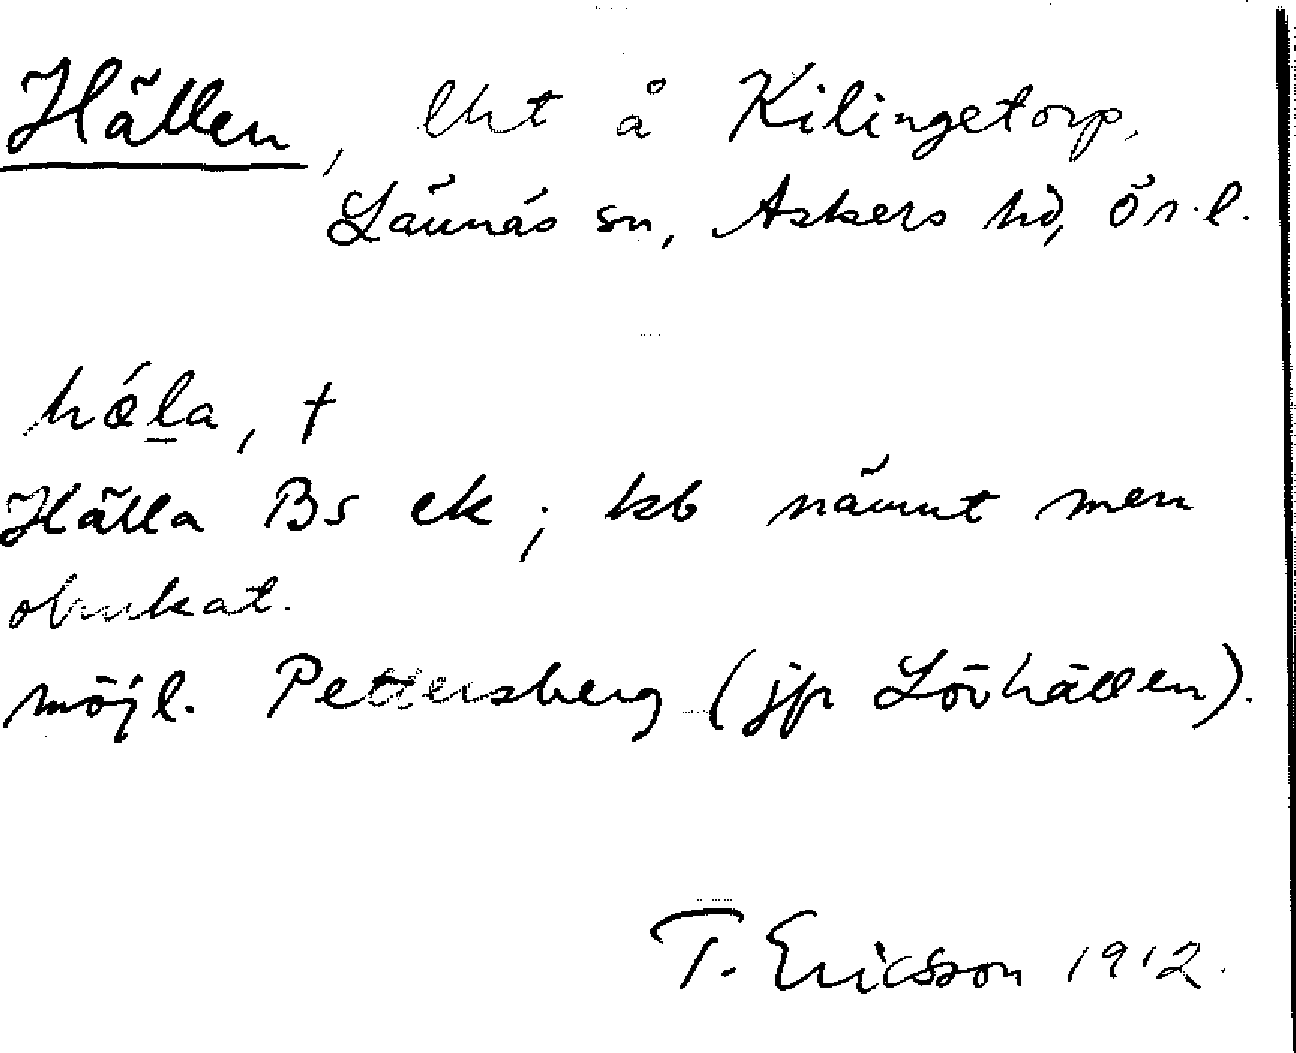 Hällen, lht å Kilingetorp,
Lännäs sn, Askers hd, Ör. l.
hǽla, †
Hälla Bs ek; kb nämnt men
obrukat.
möjl. Pettersberg (jfr Lövhällen).
T. Ericsson 1912.